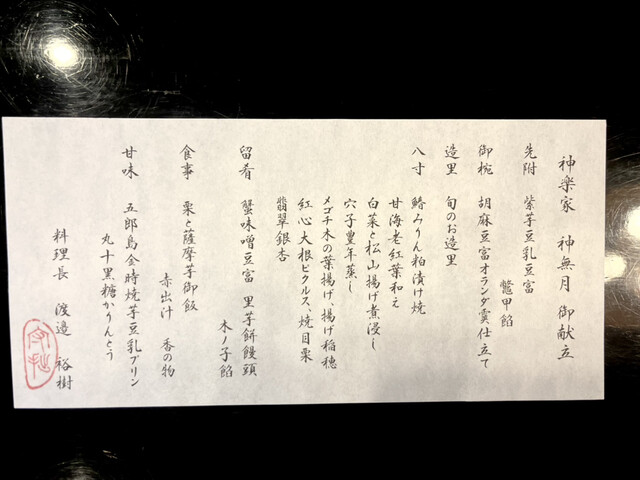 神楽家　神無月　御献立
先附　紫芋豆乳豆富
鼈甲餡
御椀　胡麻豆富オランダ霙仕立て
造里　旬のお造里
八寸　鰆みりん粕漬け焼
甘海老紅葉和え
白菜と松山揚げ煮浸し
穴子豊年蒸し
メゴチ木の葉揚げ、揚げ稲穂
紅心大根ピクルス、焼目栗
翡翠銀杏
留肴　蟹味噌豆富　里芋餅饅頭
木ノ子餡
食事　栗と薩摩芋御飯
赤出汁　香の物
甘味　五郎島金時焼芋豆乳プリン
丸十黒糖かりんとう
料理長　渡邉　裕樹